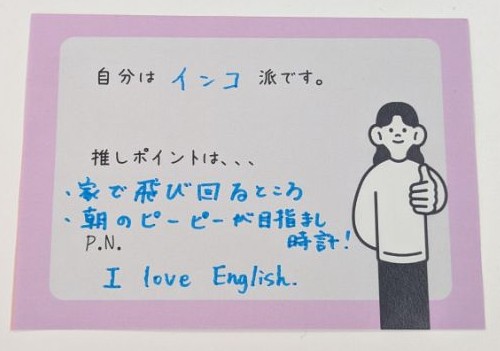 自分は インコ 派です。
推しポイントは、、、
・家で飛び回るところ
・朝のピーピーが目指まし
時計!
P.N.
I love English.